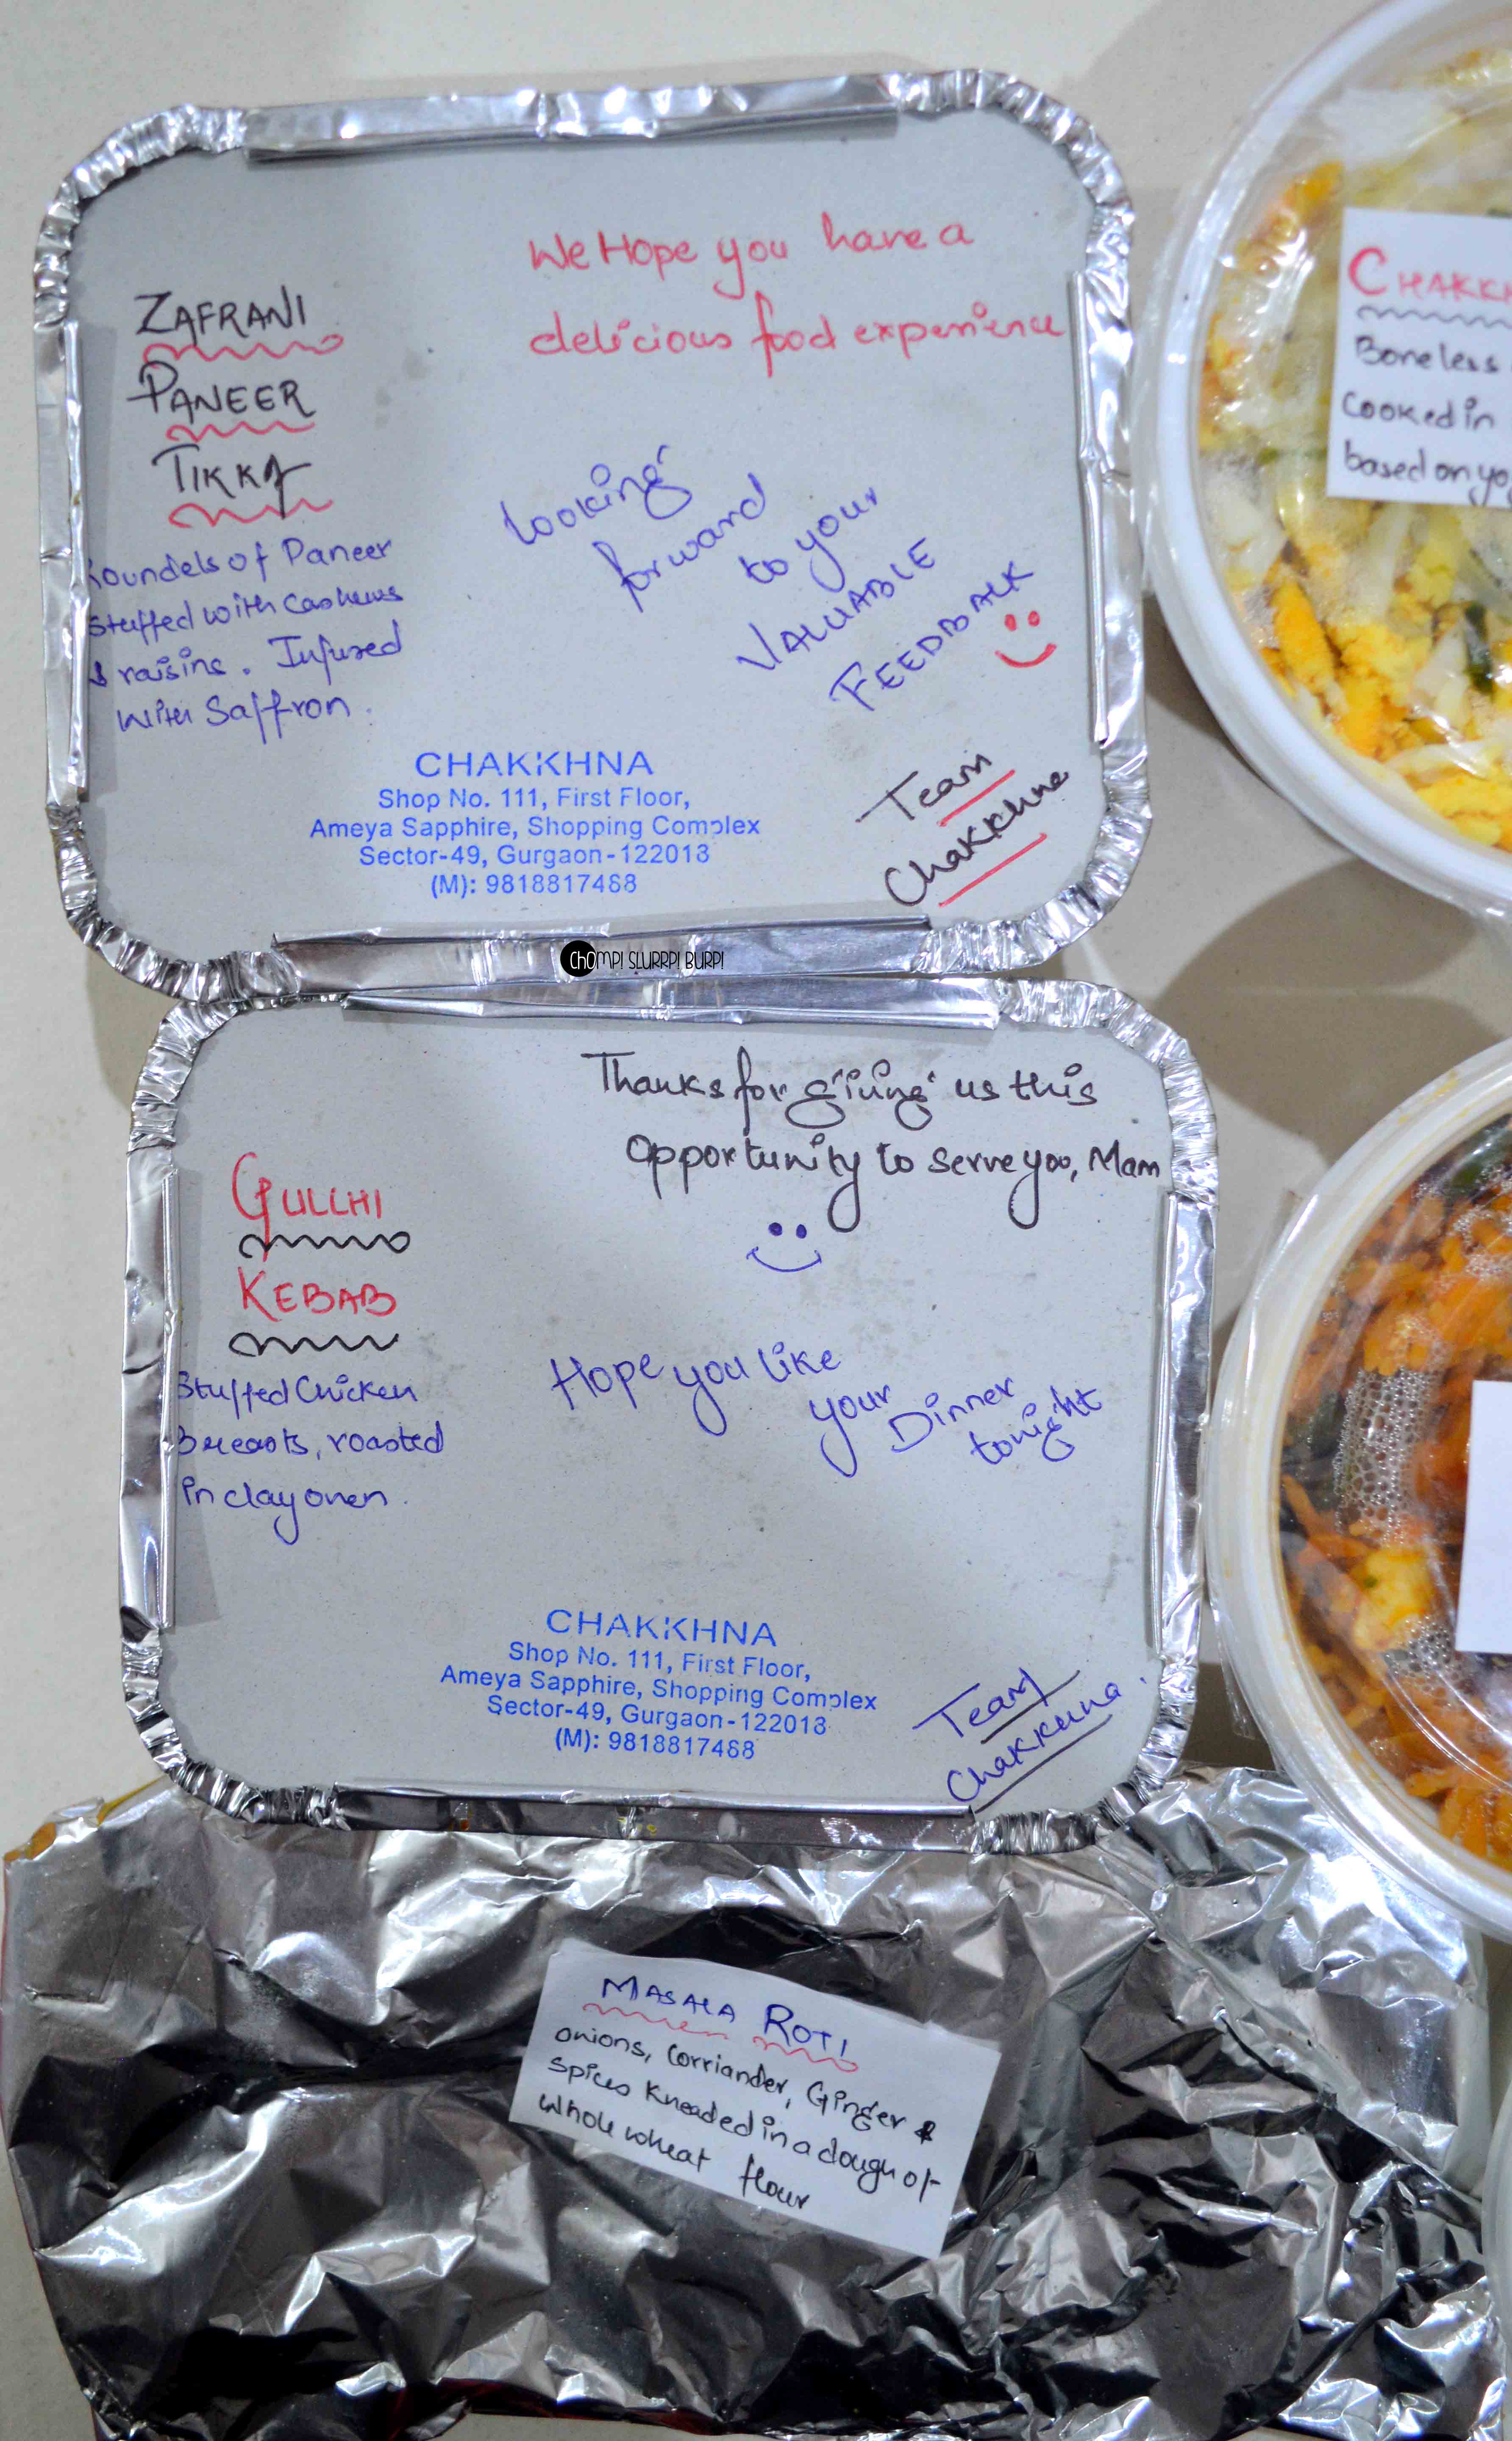 We Hope you have a
delicious food experience
ZAFRANI
PANEER
TIKKA
Roundels of Paneer
stuffed with cashews
& raisins. Infused
with Saffron.
looking
forward
to your
VALUABLE
FEEDBACK
Team
Chakkhna
CHAKKHNA
Shop No. 111, First Floor,
Ameya Sapphire, Shopping Complex
Sector-49, Gurgaon-122018
(M): 9818817468
CHOMP! SLURRP! BURP!
Thanks for giving us this
opportunity to serve you, Mam
GULLHI
KEBAB
Stuffed Chicken
Breasts, roasted
in clay oven.
Hope you like
your Dinner
tonight
CHAKKHNA
Shop No. 111, First Floor,
Ameya Sapphire, Shopping Complex
Sector-49, Gurgaon-122018
(M): 9818817468
Team
Chakkhna.
MASALA ROTI
onions, Corriander, Ginger &
spices kneaded in a dough of
whole wheat flour
Boneless
Cooked in
based on